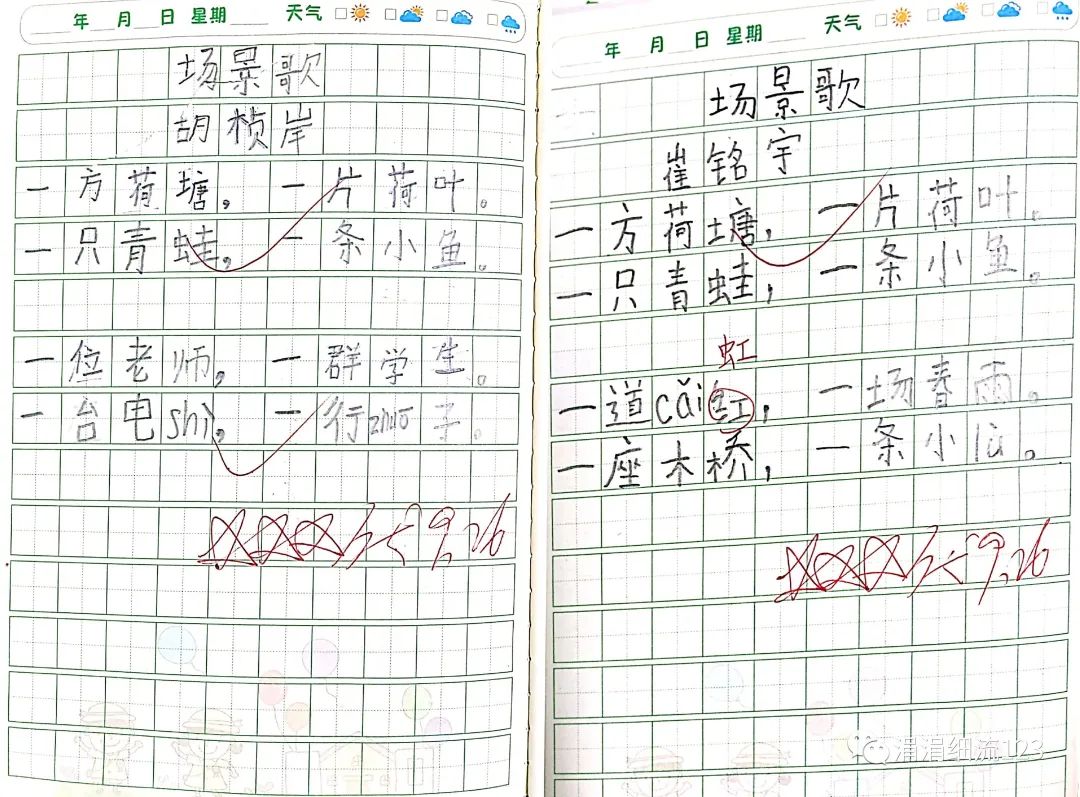 年 月 日 星期 天气
场景歌
胡桢岸
一方荷塘，一片荷叶。
一只青蛙，一条小鱼。
一位老师，一群学生。
一台电shì，一行zhuō子。
9.26
年 月 日 星期 天气
场景歌
崔铭宇
一方荷塘，一片荷叶。
一只青蛙，一条小鱼。
虹
一道cǎi红，一场春雨。
一座木桥，一条小lù。
9.26
涓涓细流123